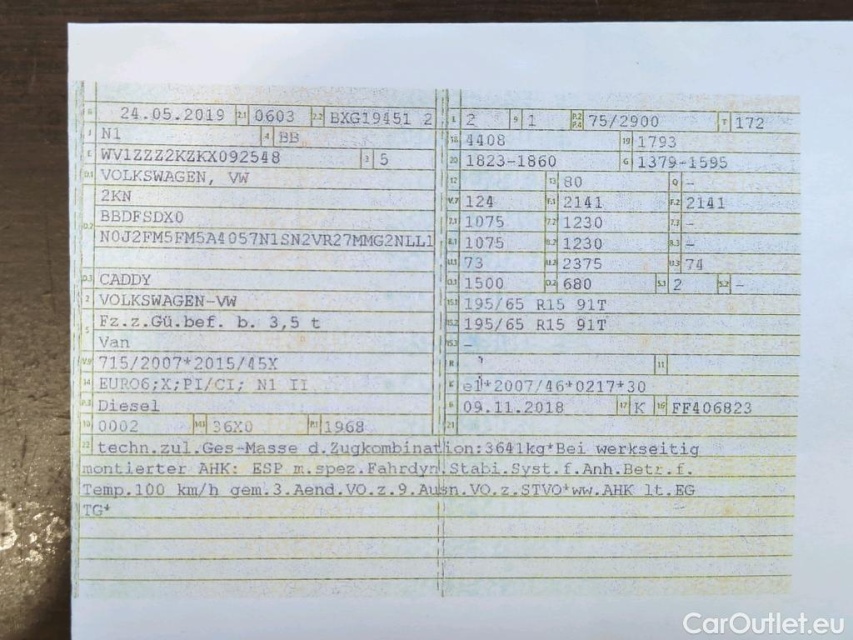 24.05.2019 2.1 0603 2.2 BXG19451 2
J N1 4 BB
E WV1ZZZ2KZKX092548 3 5
D.1 VOLKSWAGEN, VW
2KN
BBDFSDX0
D.2 N0J2FM5FM5A4057N1SN2VR27MMG2NLL1
D.3 CADDY
2 VOLKSWAGEN-VW
5 Fz.z.Gü.bef. b. 3,5 t
Van
V.9 715/2007*2015/45X
14 EURO6;X;PI/CI; N1 II
P.3 Diesel
10 0002 14.1 36X0 P.1 1968
L 2 9 1 P.2 P.4 75/2900 T 172
18 4408 19 1793
20 1823-1860 G 1379-1595
12 - 13 80 Q -
V.7 124 F.1 2141 F.2 2141
7.1 1075 7.2 1230 7.3 -
8.1 1075 8.2 1230 8.3 -
U.1 73 U.2 2375 U.3 74
O.1 1500 O.2 680 S.1 2 S.2 -
15.1 195/65 R15 91T
15.2 195/65 R15 91T
15.3 -
R 11
K e1*2007/46*0217*30
6 09.11.2018 17 K 16 FF406823
21
22 techn.zul.Ges-Masse d.Zugkombination:3641kg*Bei werkseitig
montierter AHK: ESP m.spez.Fahrdyn.Stabi.Syst.f.Anh.Betr.f.
Temp.100 km/h gem.3.Aend.VO.z.9.Ausn.VO.z.STVO*ww.AHK lt.EG
TG*
CarOutlet.eu